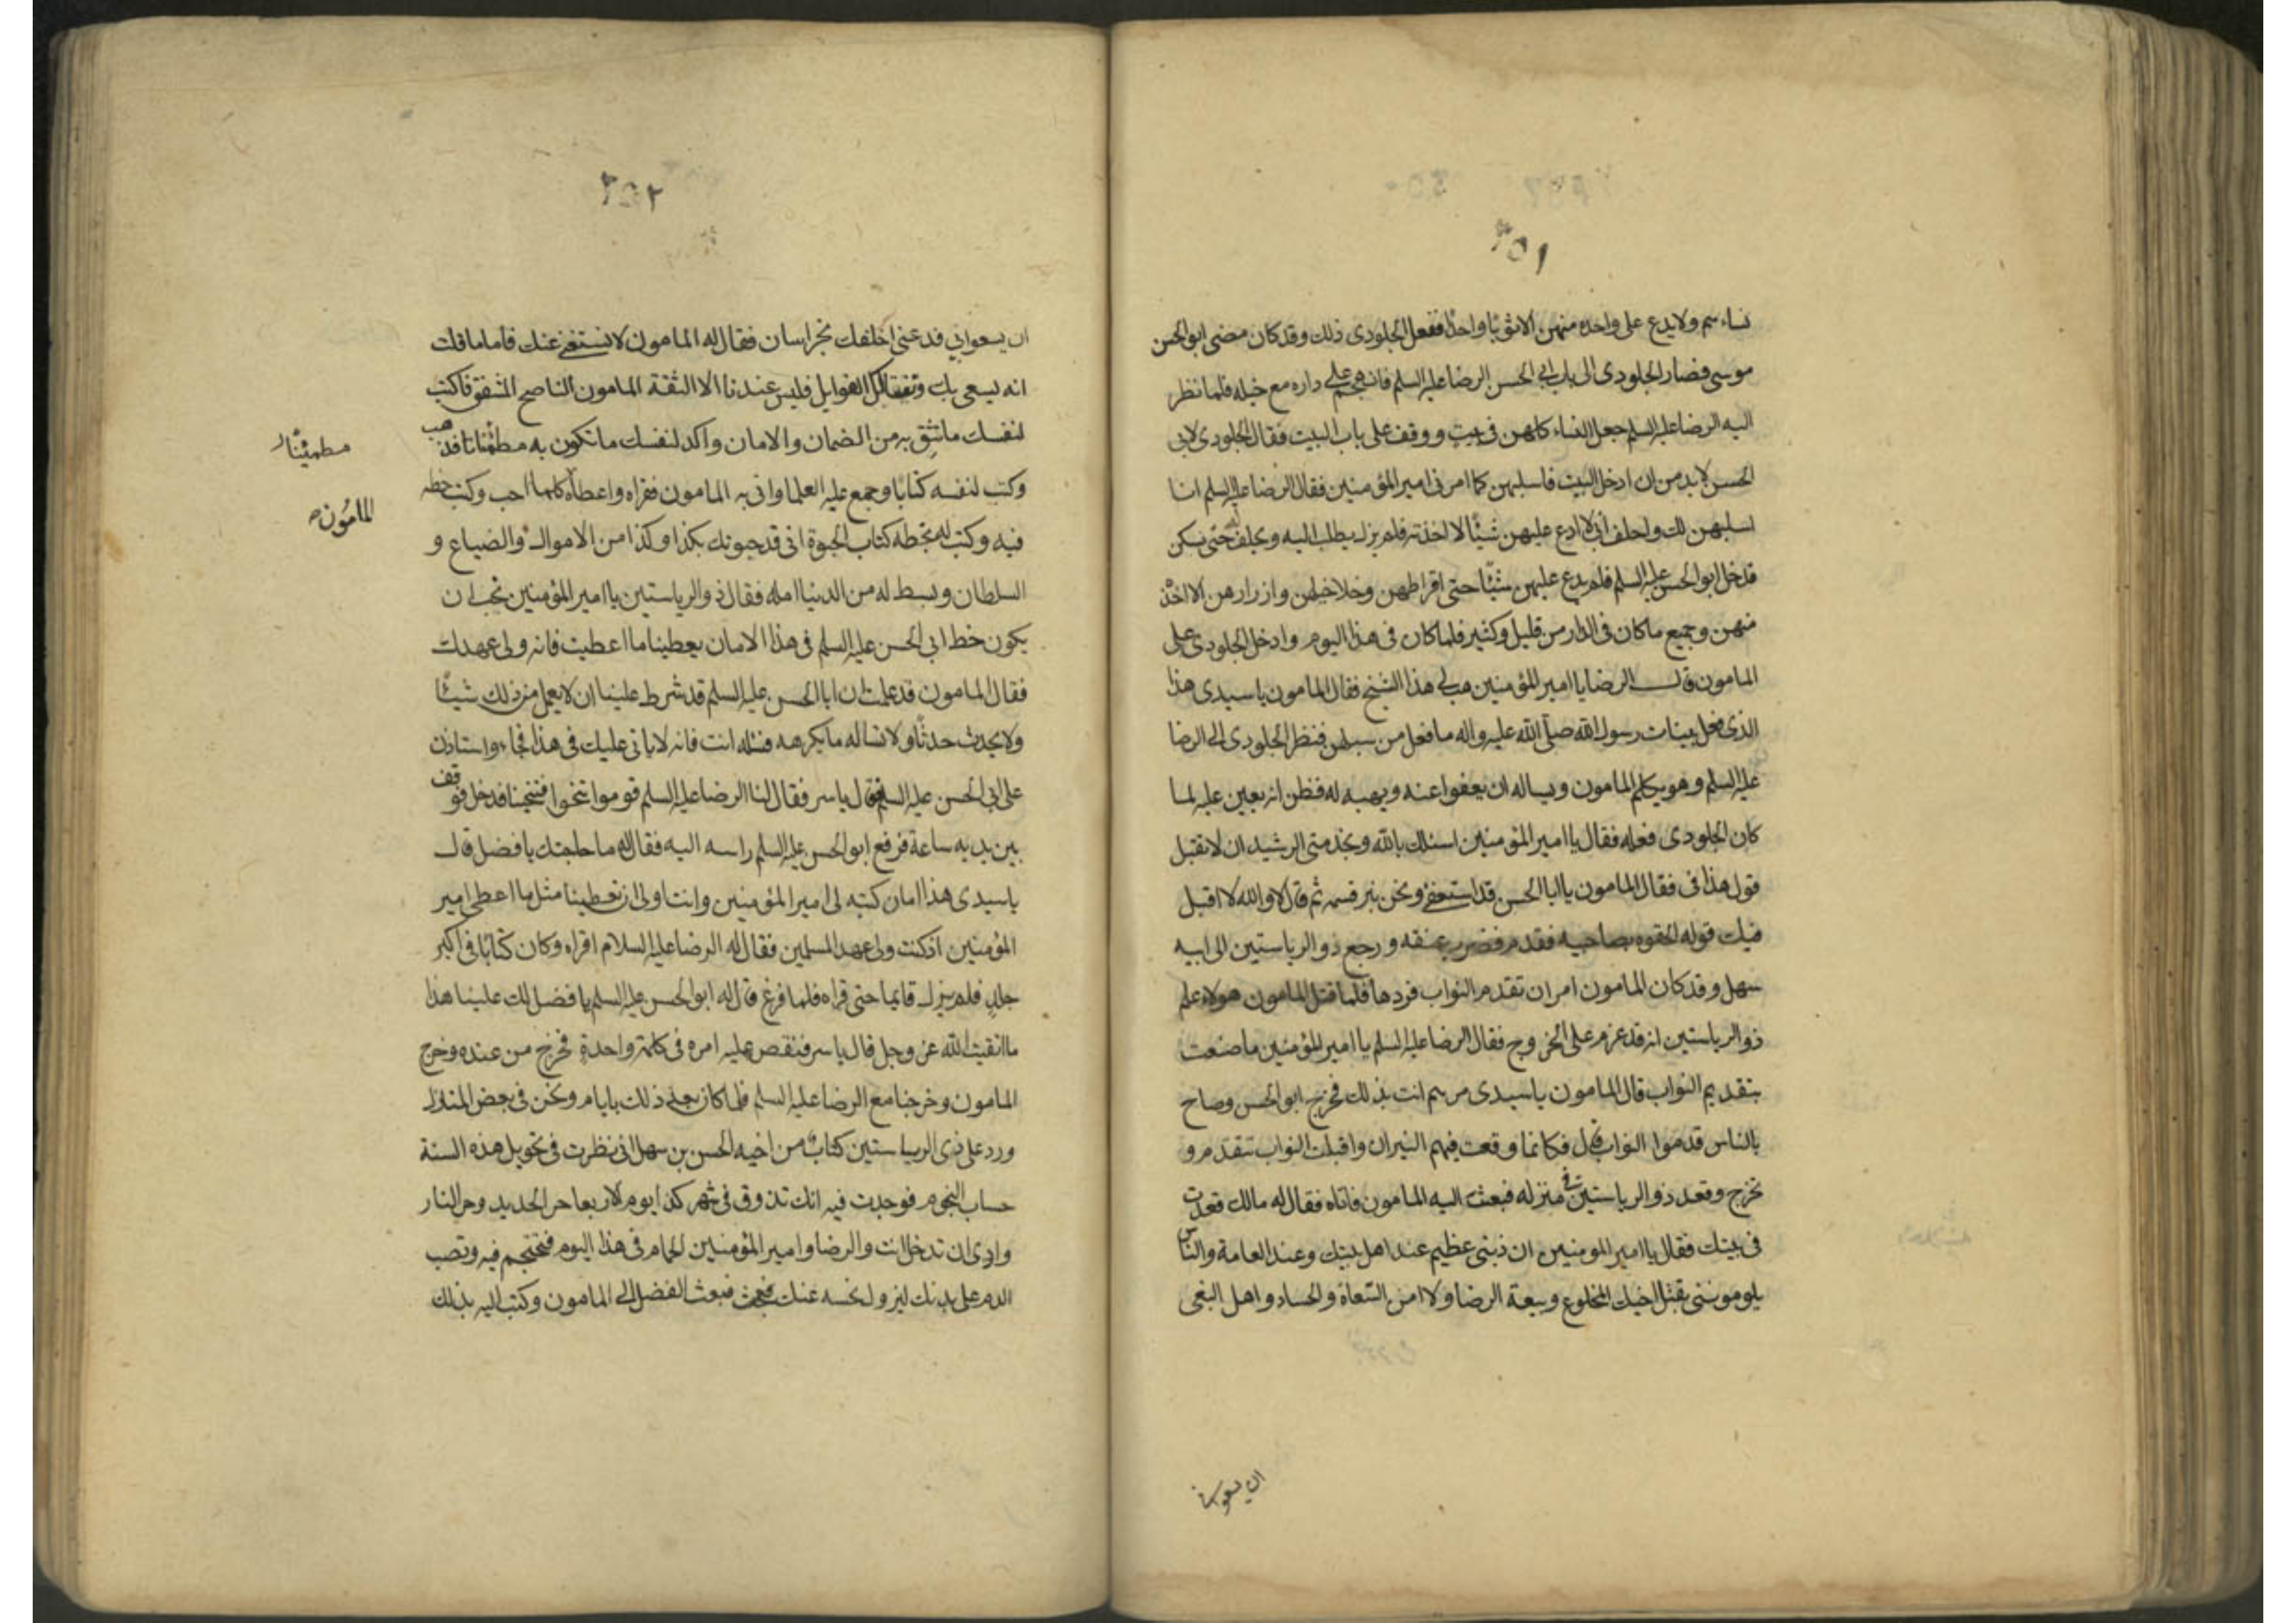 ٢٥١
نساءهم ولا يدع على واحدة منهن الا ثوبًا واحدًا ففعل الجلودى ذلك وقد كان مضى ابو الحسن
موسى فصار الجلودى الى باب ابى الحسن الرضا عليه السلم فانهجم على داره مع خيله فلما نظر
اليه الرضا عليه السلم جعل النساء كلهن فى بيت ووقف على باب البيت فقال الجلودى لابى
الحسن لا بد من ان ادخل البيت فاسلبهن كما امرنى امير المؤمنين فقال الرضا عليه السلم انا
اسلبهن لك واحلف انى لا ادع عليهن شيئًا الا اخذته فلم يزل يطلب اليه ويحلف له حتى سكن
فدخل ابو الحسن عليه السلم فلم يدع عليهن شيئًا حتى اقراطهن وخلاخيلهن وازرارهن الا اخذه
منهن وجميع ما كان فى الدار من قليل وكثير فلما كان فى هذا اليوم وادخل الجلودى على
المامون قال الرضا يا امير المؤمنين هب لى هذا الشيخ فقال المامون يا سيدى هذا
الذى فعل ببنات رسول الله صلى الله عليه واله ما فعل من سلبهن فنظر الجلودى الى الرضا
عليه السلم وهو يكلم المامون ويساله ان يعفوا عنه ويهبه له فظن انه يعين عليه لما
كان الجلودى فعله فقال يا امير المؤمنين اسئلك بالله وبخدمتى الرشيد ان لا تقبل
قول هذا فى فقال المامون يا ابا الحسن قد استعفى ونحن نبر قسمه ثم قال لا والله لا اقبل
فيك قوله الحقوه بصاحبيه فقدم فضرب عنقه ورجع ذو الرياستين الى ابيه
سهل وقد كان المامون امر ان تقدم النواب فردها فلما قتل المامون هولاء علم
ذو الرياستين انه قد عزم على الخروج فقال الرضا عليه السلم يا امير المؤمنين ما صنعت
بتقديم النواب قال المامون يا سيدى مرهم انت بذلك فخرج ابو الحسن وصاح
بالناس قدموا النواب قال فكانما وقعت فيهم النيران واقبلت النواب تتقدم و
تخرج وقعد ذو الرياستين فى منزله فبعث اليه المامون فاتاه فقال له مالك قعدت
فى بيتك فقال يا امير المومنين ان ذنبى عظيم عند اهل بيتك وعند العامة والناس
يلوموننى بقتل اخيك المخلوع وبيعة الرضا ولا امن السعاة والحساد واهل البغى
ان يسعوا بى
٢٥٢
ان يسعوا بى فدعنى اخلفك بخراسان فقال له المامون لا نستغنى عنك فاما ما قلت
انه يسعى بك وتبتغى لك الغوايل فليس عندنا الا الثقة المامون الناصح المشفق فاكتب
لنفسك ما تثق به من الضمان والامان واكد لنفسك ما تكون به مطمئنا فذهب
مطمئنًا
وكتب لنفسه كتابًا وجمع عليه العلما واتى به المامون فقراه واعطاه كلما احب وكتب خطه
المامون
فيه وكتب له بخطه كتاب الحبوة انى قد حبوتك بكذا وكذا من الاموال والضياع و
السلطان وبسط له من الدنيا امله فقال ذو الرياستين يا امير المؤمنين نحب ان
يكون خط ابى الحسن عليه السلم فى هذا الامان يعطينا ما اعطيت فانه ولى عهدك
فقال المامون قد علمت ان ابا الحسن عليه السلم قد شرط علينا ان لا يعمل من ذلك شيئًا
ولا يحدث حدثًا ولا نساله ما يكرهه فسئله انت فانه لا يابى عليك فى هذا فجاء واستاذن
على ابى الحسن عليه السلم قال ياسر فقال لنا الرضا عليه السلم قوموا تنحوا فتنحينا فدخل فوقف
بين يديه ساعة فرفع ابو الحسن عليه السلم راسه اليه فقال له ما حاجتك يا فضل قال
يا سيدى هذا امان كتبه لى امير المؤمنين وانت اولى ان تعطينا مثل ما اعطى امير
المؤمنين اذ كنت ولى عهد المسلمين فقال له الرضا عليه السلام اقراه وكان كتابًا فى اكبر
جلد فلم يزل قايما حتى قراه فلما فرغ قال له ابو الحسن عليه السلم يا فضل لك علينا هذا
ما اتقيت الله عز وجل قال ياسر فنقص عليه امره فى كلمة واحدة فخرج من عنده وخرج
المامون وخرجنا مع الرضا عليه السلم فلما كان بعد ذلك بايام ونحن فى بعض المنازل
ورد على ذى الرياستين كتاب من اخيه الحسن بن سهل انى نظرت فى تحويل هذه السنة
حساب النجوم فوجدت فيه انك تذوق فى شهر كذا يوم الاربعا حر الحديد وحر النار
وارى ان تدخل انت والرضا وامير المؤمنين الحمام فى هذا اليوم فتحتجم فيه وتصب
الدم على بدنك ليزول نحسه عنك فبعث الفضل الى المامون وكتب اليه بذلك